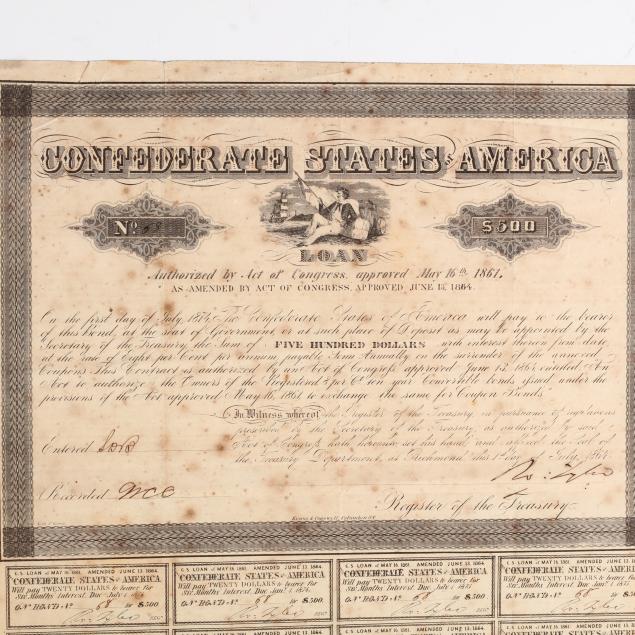 CONFEDERATE STATES OF AMERICA
No. 98
$500
LOAN
Authorized by Act of Congress, approved May 16th 1861.
AS AMENDED BY ACT OF CONGRESS, APPROVED JUNE 13, 1864.
On the first day of July, 1874, The Confederate States of America will pay to the bearer
of this Bond, at the Seat of Government, or at such place of Deposit as may be appointed by the
Secretary of the Treasury, the Sum of FIVE HUNDRED DOLLARS with interest thereon from date
at the rate of Eight per Cent per annum, payable Semi Annually on the surrender of the annexed
Coupons. This Contract is authorized by an Act of Congress approved June 13, 1864 entitled An
Act to authorize the Owners of the Registered 8 pr Ct ten year Convertible bonds issued under the
provisions of the Act approved May 16, 1861 to exchange the same for Coupon Bonds.
In Witness whereof the Register of the Treasury, in pursuance of
prescribed by the Secretary of the Treasury, as authorized by said
Act of Congress, hath hereunto set his hand and affixed the Seal of
the Treasury Department, at Richmond this 1st day of July, 1864.
Entered
Ro. Tyler
Recorded
Register of the Treasury.
Evans & Cogswell, Columbia S.C.
C.S. LOAN of MAY 16, 1861. AMENDED JUNE 13, 1864.
CONFEDERATE STATES of AMERICA
Will pay TWENTY DOLLARS to bearer for
Six Months Interest Due July 1
ON BOND No. 98 for $500
Ro. Tyler
C.S. LOAN of MAY 16, 1861. AMENDED JUNE 13, 1864.
CONFEDERATE STATES of AMERICA
Will pay TWENTY DOLLARS to bearer for
Six Months Interest. Due Jan'y 1, 1874.
ON BOND No. 98 for $500
Ro. Tyler
C.S. LOAN of MAY 16, 1861. AMENDED JUNE 13, 1864.
CONFEDERATE STATES of AMERICA
Will pay TWENTY DOLLARS to bearer for
Six Months Interest. Due July 1
ON BOND No. 98 for $500
Ro. Tyler
C.S. LOAN of MAY 16, 1861. AMENDED JUNE 13, 1864.
CONFEDERATE STATES of AMERICA
Will pay TWENTY DOLLARS to bearer for
Six Months Interest. Due Jan'y 1, 1873
ON BOND No. 98 for $500
Ro. Tyler
C.S. LOAN of MAY 16, 1861. AMENDED JUNE 13, 1864.
C.S. LOAN of MAY 16, 1861. AMENDED JUNE 13, 1864.
C.S. LOAN of MAY 16, 1861. AMENDED JUNE 13, 1864.